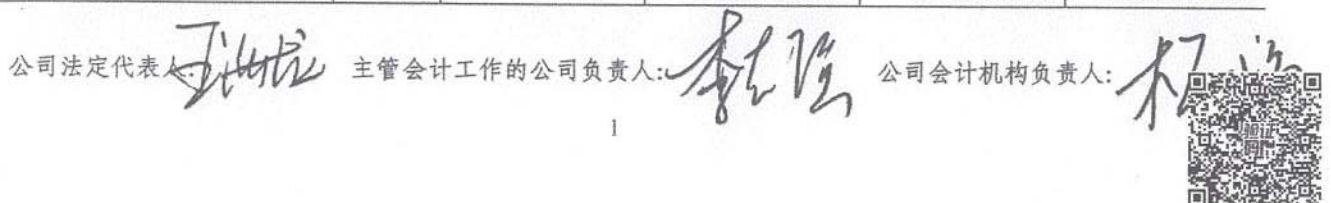 公司法定代表人: 主管会计工作的公司负责人: 李志强 公司会计机构负责人:
1
验证